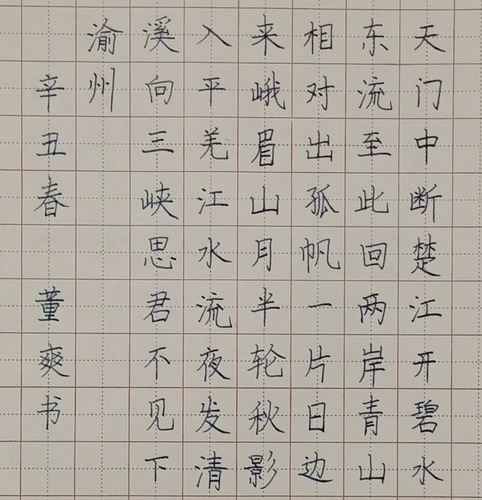 天门中断楚江开碧水
东流至此回两岸青山
相对出孤帆一片日边
来峨眉山月半轮秋影
入平羌江水流夜发清
溪向三峡思君不见下
渝州
辛丑春 董爽书